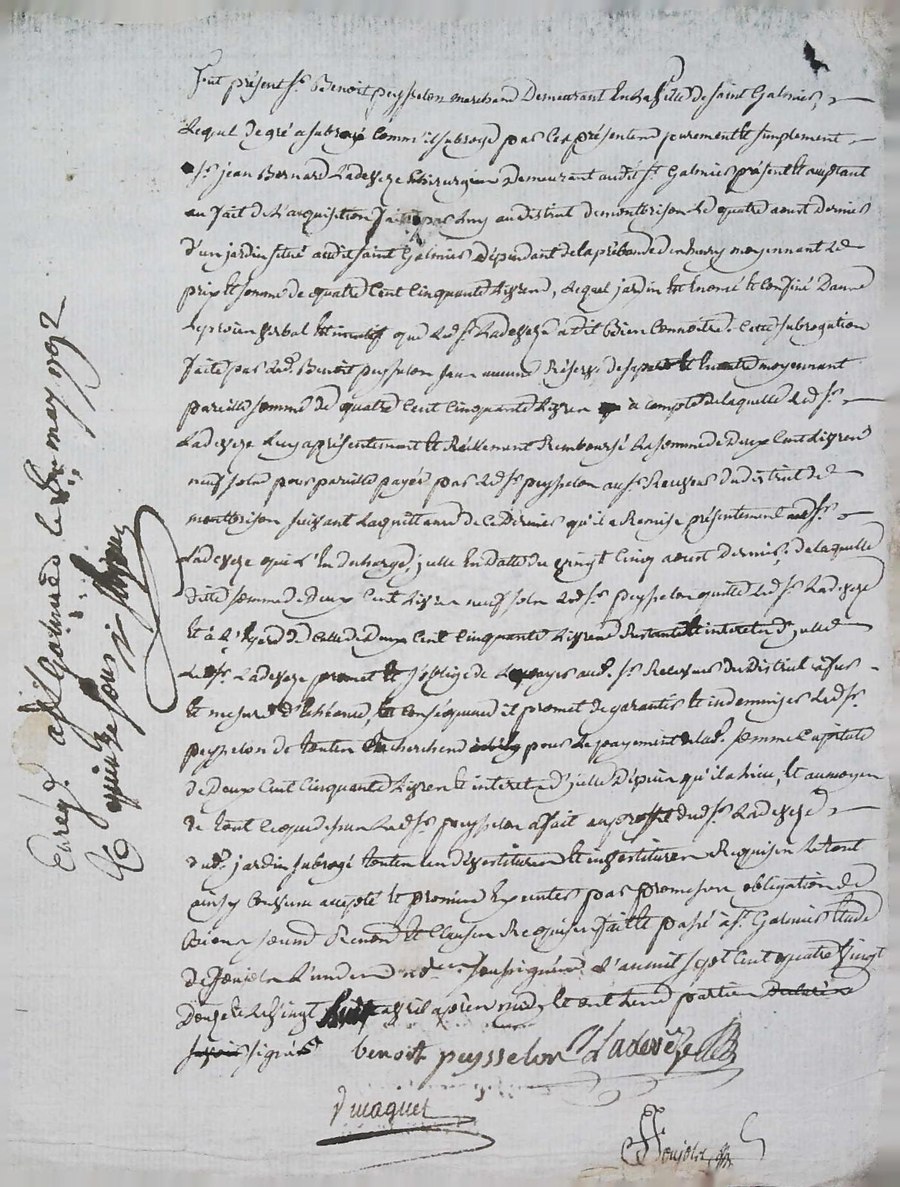 Fut présent sr Benoit peysselon marchand Demeurant En la ville de saint Galmier,
Lequel de gré a subrogé comme il subroge par Ces présentes purement et simplement
sr jean Bernard Ladeveze Chirurgien Demeurant audit st Galmier présent et acceptant
au fait de L'acquisition faite par luy au district de montbrison Le quatre aoust dernier
d'un jardin situé audit saint Galmier dépendant de la prébande moyennant Le
prix et somme de quatre Cent Cinquante Livres, Lequel jardin est Enoncé et Confiné Dans
Le procès verbal que Led. sr Ladeveze a dit Bien Connoitre. Cette subrogation
faite par led. Benoit peysselon sans aucune Réserve de sa part et moyennant
pareille somme de quatre Cent Cinquante Livres a compte de laquelle Led. sr
Ladeveze Luy a présentement et Réellement Remboursé La somme de deux Cent Livres
neuf sols pour pareille payée par Led. sr peysselon au sr Receveur du district de
montbrison suivant La quittance de ce Dernier qu'il a Remise présentement aud. sr
Ladeveze qui L'En décharge, icelle En Datte du vingt Cinq aoust dernier, de laquelle
ditte somme de deux Cent Livres neuf sols Led. sr peysselon quitte Led. sr Ladeveze
Et à L'Egard de Celle de deux Cent Cinquante Livres Restante et interets d'icelle
Led. sr Ladeveze promet et s'oblige de La payer aud. sr Receveur du District a fur
Et mesure d'Echéance, Et Conséquence il promet de garantir et indemniser Led. sr
peysselon de toutes Recherches pour Le payement de lad. somme Capitale
de Deux Cent Cinquante Livres et interets d'icelle Depuis qu'il a Lieu, Et au moyen
de tout Ce que dessus Led. sr peysselon a fait au proffit dud. sr Ladeveze
dud. jardin subrogé toutes Les dévestitures et investitures Requises Le tout
ainsy Convenu accepté et promis Executer par promesse obligation de
Biens Renon. et Clauses Requises fait et passé a st Galmier Etude
de Poujolx L'un des soussignés L'an mil sept Cent quatre vingt
Douze et Le vingt huit avril après midy Et ont Lesd. parties
signé benoit peysselon Ladevèze
Ducaquet
Poujolx
Enreg.d a st Galmier le may 1792
R. quinze sous